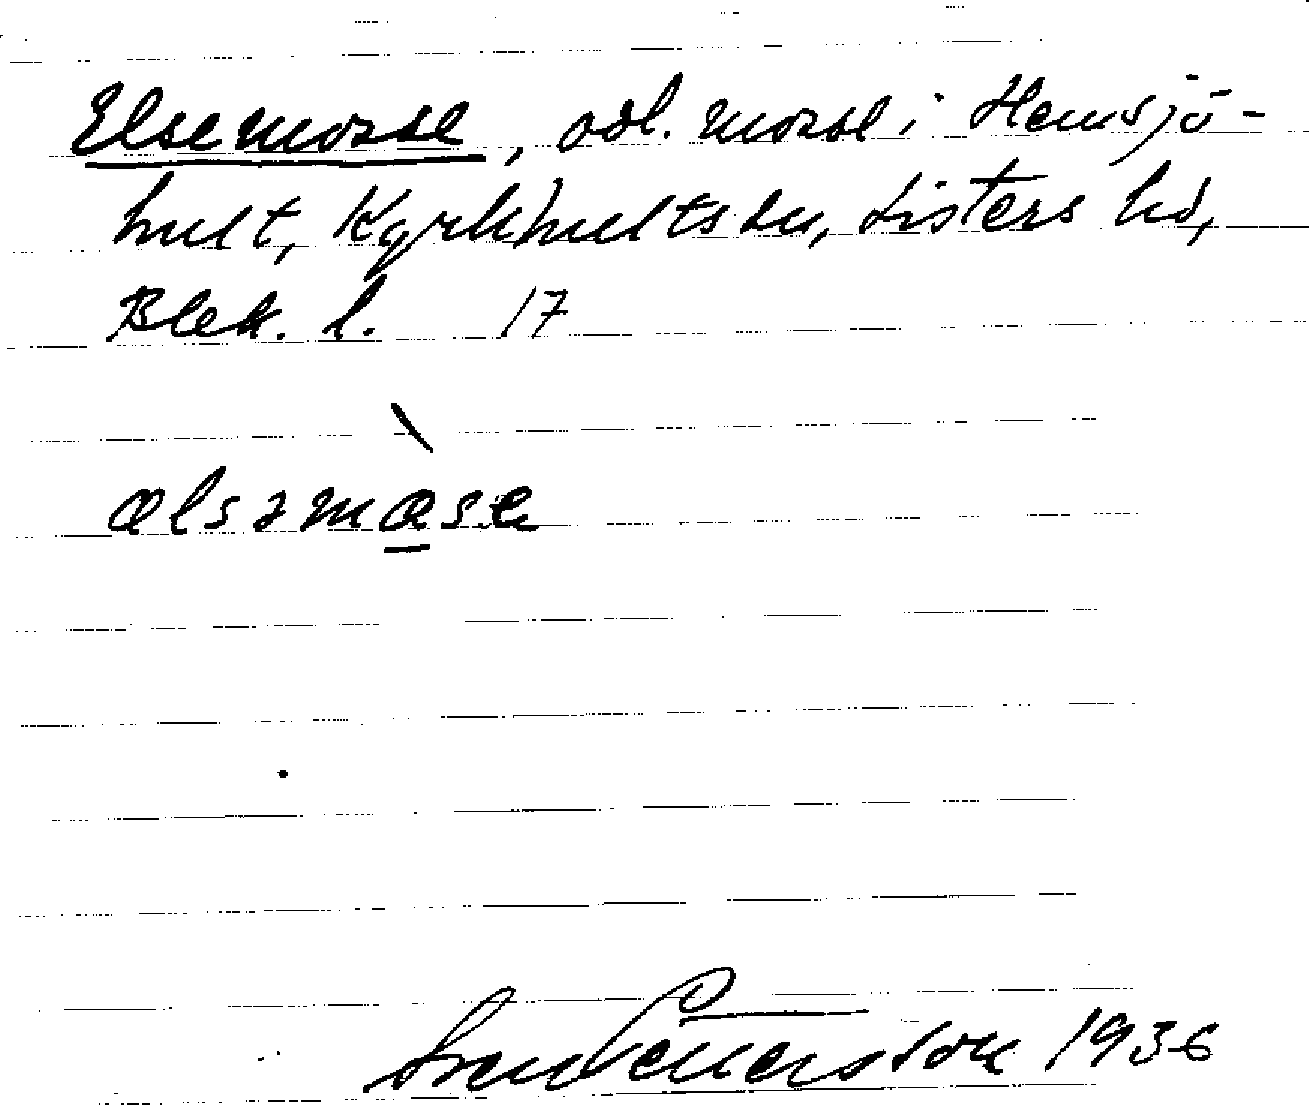 Elsemosse, odl. mosse i Hemsjö-
hult, Kyrkhults sn, Listers hd,
Blek. l. 17
ælsəmase
Sven Pettersson 1936